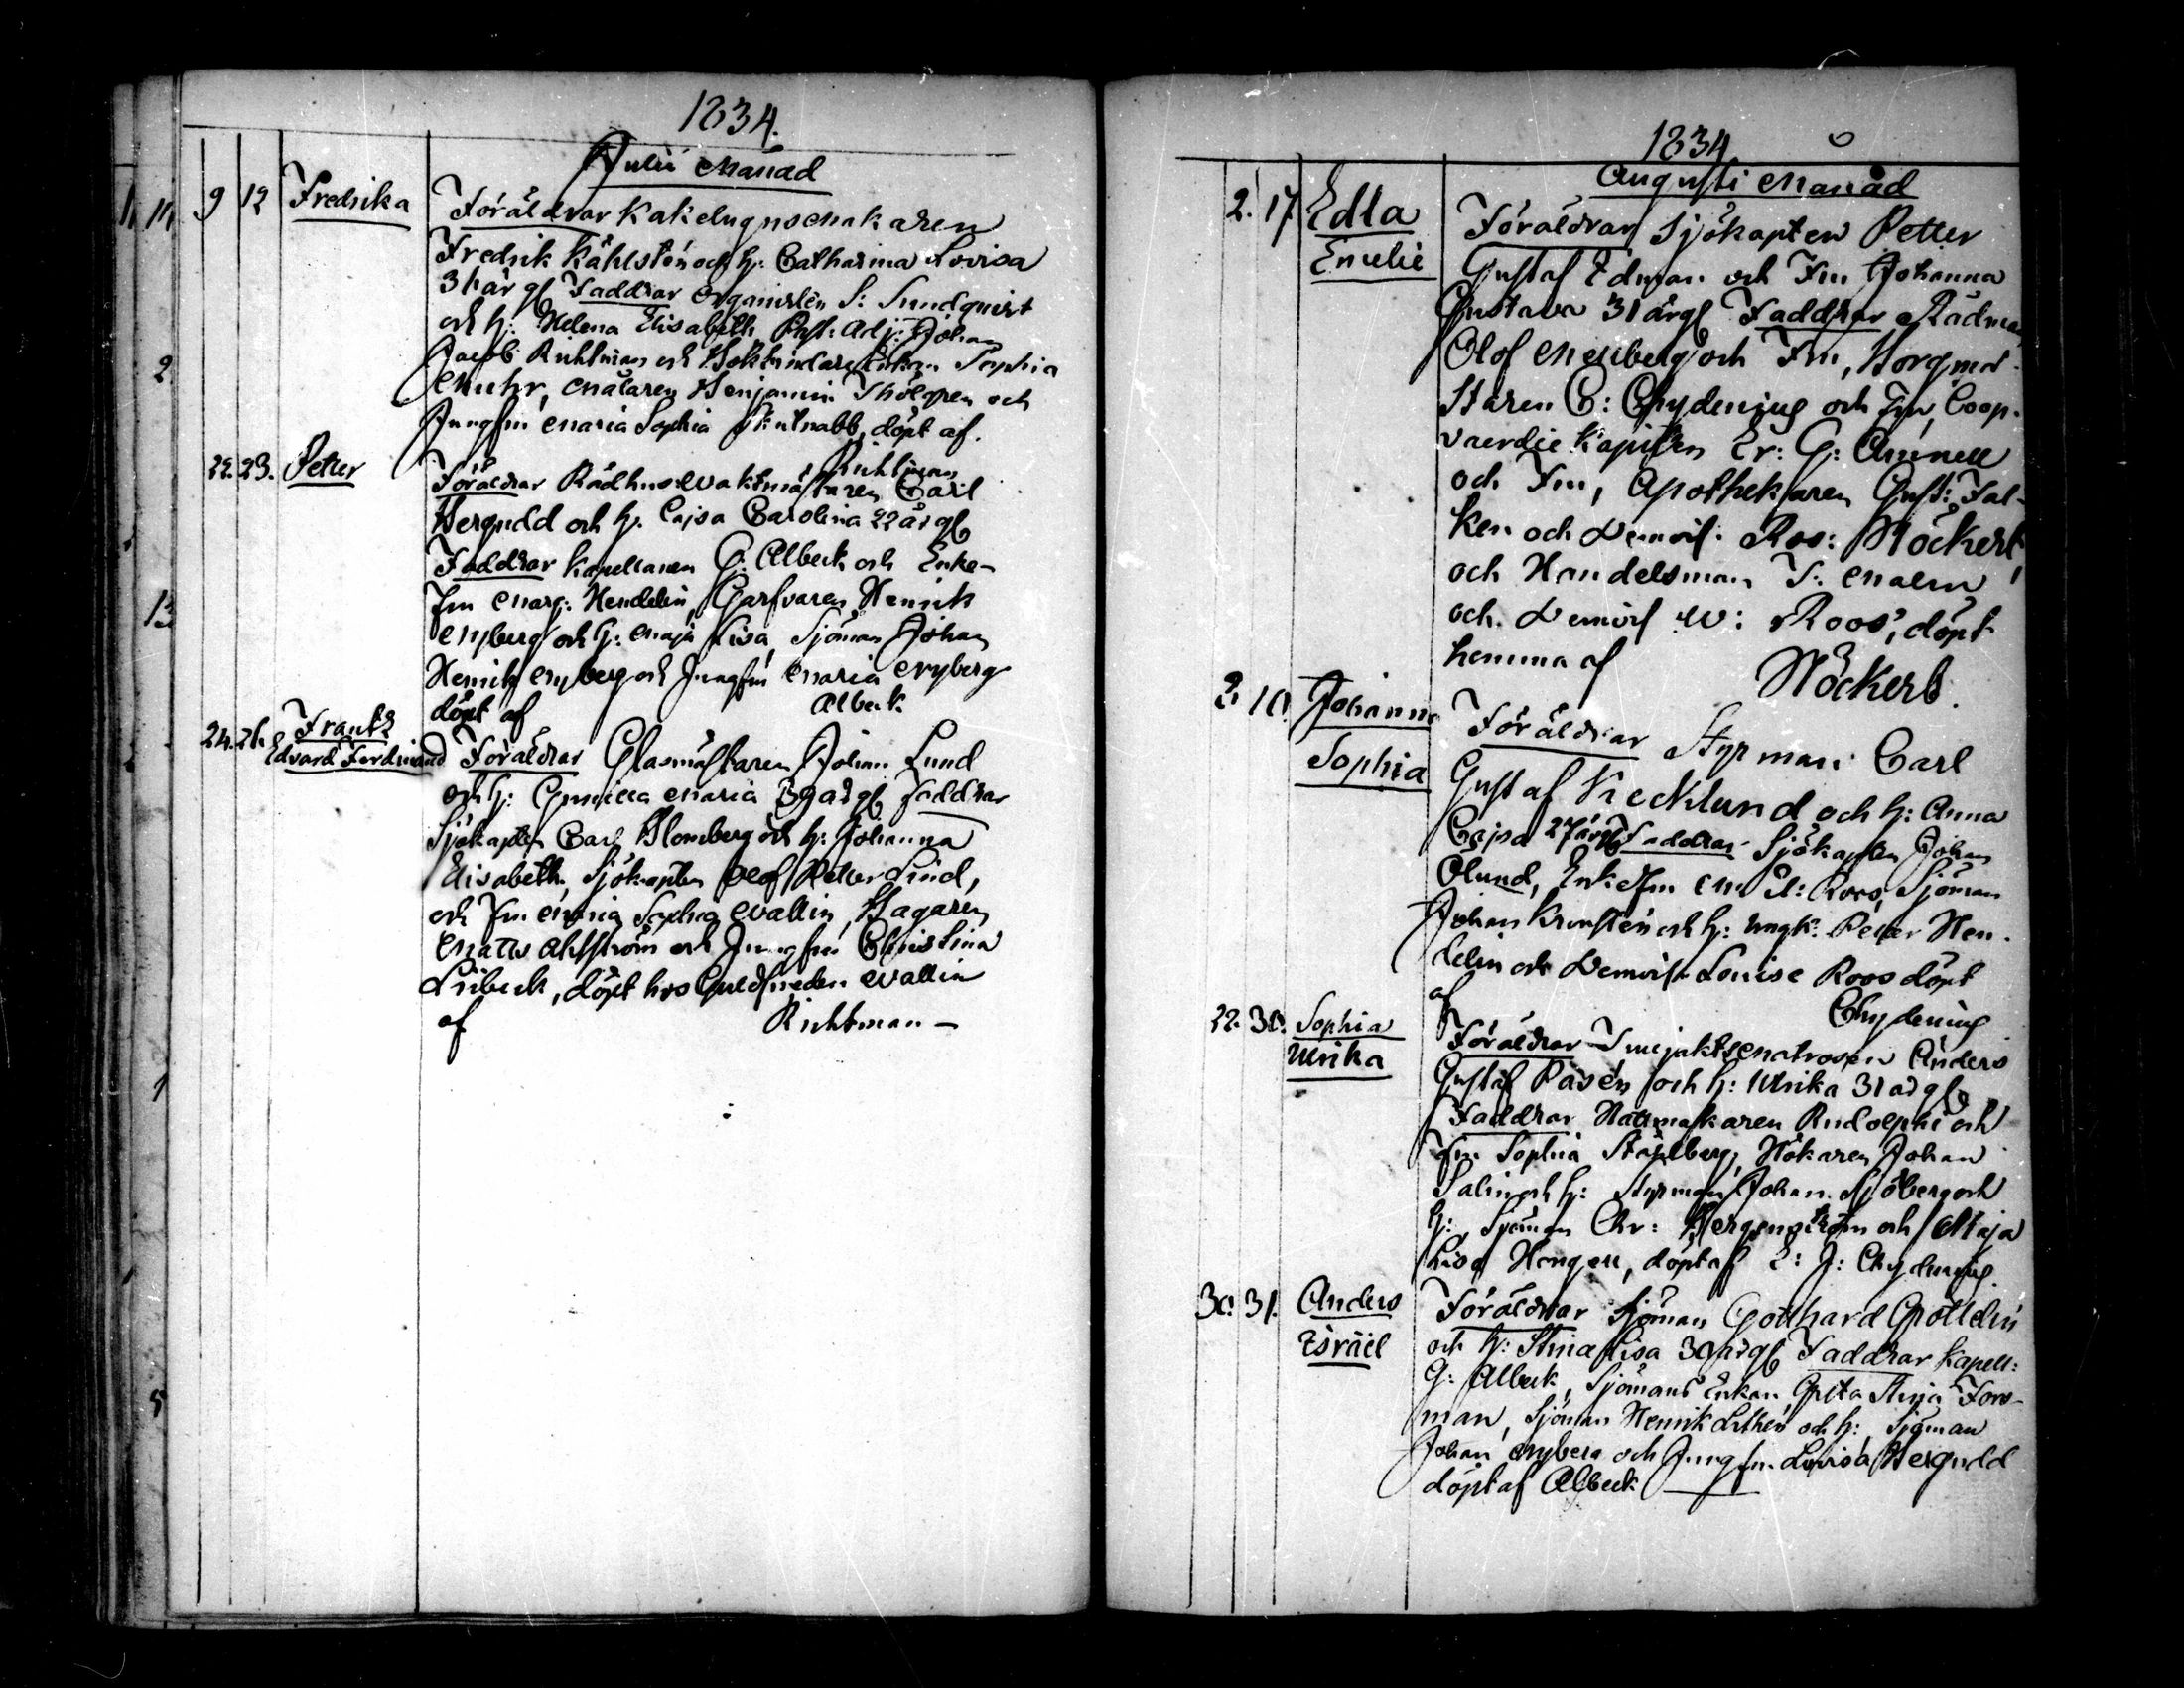 1834.
Julii Månad
9 12 Fredrika Föräldrar Kakelugnsmakaren
Fredrik Kåhlstén och h: Catharina Lovisa
31 år gl Faddrar Organisten S: Sundqvist
och h: Helena Elisabeth, Past: Adj: Johan
Jacob Richtman och Enkan Sophia
Muhr, Målaren Benjamin Thölgren och
Jungfru Maria Sophia döpt af.
Richtman
22. 23. Petter Föräldrar Rådhus Waktmästaren Carl
Bergudd och h. Cajsa Carolina 22 år gl
Faddrar Kapellanen G: Albeck och Enke-
fru Marg: Hendelin, Garfvaren Henrik
Nyberg och h: Maja Lisa, Sjöman Johan
Henrik Nyberg och Jungfru Maria Nyberg
döpt af Albeck
24. 26. Frantz
Edvard Ferdinand Föräldrar Glasmästaren Johan Lund
och h: Gunilla Maria 39 år gl Faddrar
Sjökapten Carl Blomberg och h: Johanna
Elisabeth, Sjökapten Olof Petter Lind,
och Fru Sophia Wallin, Bagaren
Matts Ahlström och Jungfru Christina
Lübeck, döpt hos Guldsmeden Wallin
af Richtman —
1834
Augusti Månad
2. 17 Edla
Emelie
Föräldrar Sjökapten Petter
Gustaf Edman och Fru Johanna
Gustava 31 år gl Faddrar Rådman
Olof Mellberg och Fru, Borgmä-
staren C: Chydenius och Fru, Coop-
vaerdie Kapiten Er: G: Annell
och Fru, Apothekaren Gust: Fal-
ken och Demois: Ros: Höckert,
och Handelsman S: Malm
och Demois W: Roos, döpt
hemma af Höckert.
2. 10. Johanna
Sophia
Föräldrar Styrman Carl
Gustaf Kecklund och h: Anna
Cajsa 27 år gl Faddrar Sjökapten Johan
Ölund, Enkefru Roos, Sjöman
Johan Kronstén och h: ungk: Petter Hen-
delin och Demois: Louise Roos döpt
af Chydenius
22. 30. Sophia
Ulrika
Föräldrar Matrosen Anders
Gustaf Rasén och h: Ulrika 31 år gl
Faddrar Hattmakaren Rudolphi och
fru Sophia Ståhlberg, Hökaren Johan
Salin och h: Styrman Johan Sjöberg och
h: Sjöman Chr: Bergenström och Maja
Lisa Hongell, döpt af E: J: Chydenius.
30. 31. Anders
Israël
Föräldrar Sjöman Gotthard
och h: Stina Lisa 30 år gl Faddrar Kapell:
G: Albeck, Sjömans Enkan Greta Stina Fors-
man, Sjöman Henrik Lithén och h: Sjöman
Johan Nyberg och Jungfru Lovisa Bergudd
döpt af Albeck